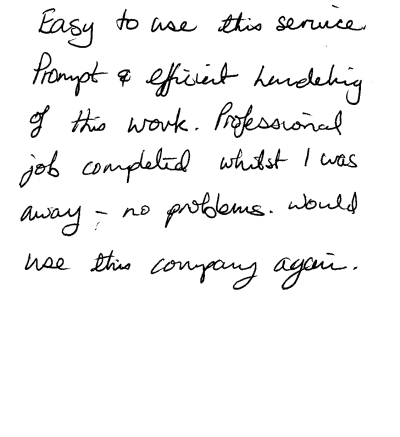 Easy to use this service.
Prompt & efficient handeling
of this work. Professional
job completed whilst I was
away - no problems. Would
use this company again.